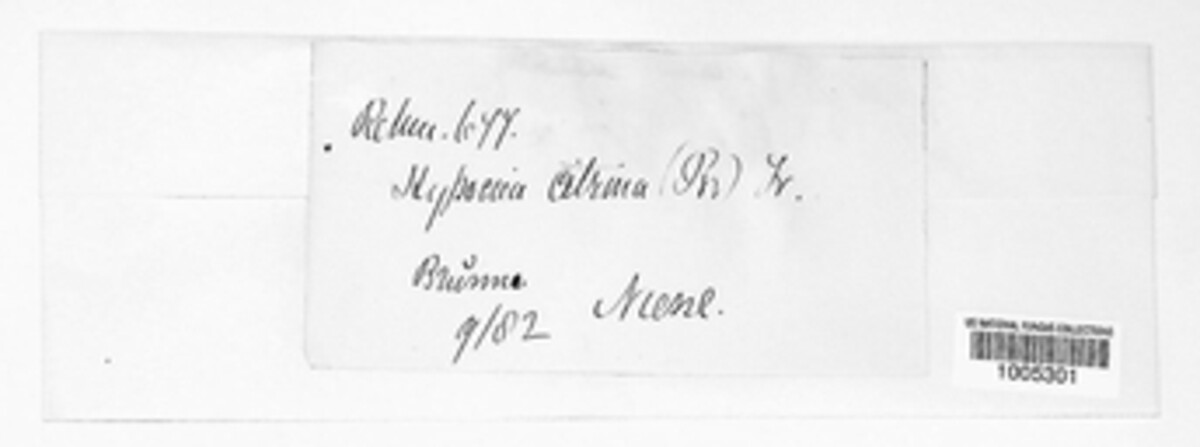 Rehm. 677.
Hypocrea citrina (Pr) Fr.
Brünn
9/82 Niessl.
US NATIONAL FUNGUS COLLECTIONS
1005301